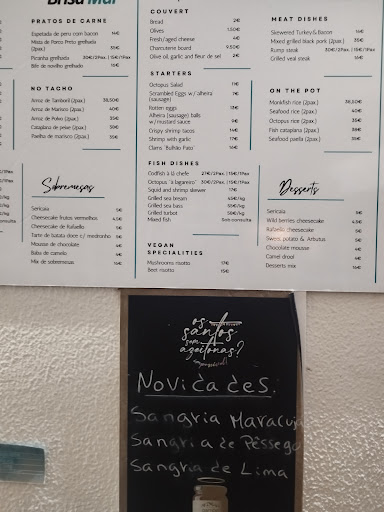 Brisa Mar
PRATOS DE CARNE
Espetada de peru com bacon 16€
Mista de Porco Preto grelhada
(2pax.) 35€
Picanha grelhada 30€/2Pax. | 15€/1Pax
Bife de novilho grelhado 15€
NO TACHO
Arroz de Tamboril (2pax.) 38,50€
Arroz de Marisco (2pax.) 40€
Arroz de Polvo (2pax.) 35€
Cataplana de peixe (2pax.) 39€
Paelha de marisco (2pax.) 35€
Sobremesas
Sericaia 5€
Cheesecake frutos vermelhos 4.5€
Cheesecake de Rafaello 5€
Tarte de batata doce c/ medronho 5€
Mousse de chocolate 4€
Baba de camelo 4€
Mix de sobremesas 16€
COUVERT
Bread 2€
Olives 1.50€
Fresh/aged cheese 4€
Charcuterie board 9.50€
Olive oil, garlic and fleur de sel 2€
STARTERS
Octopus Salad 11€
Scrambled Eggs w/"alheira" 7€
(sausage)
Rotten eggs 13€
Alheira (sausage) balls
w/mustard sauce 9€
Crispy shrimp tacos 14€
Shrimp with garlic 17€
Clams "Bulhão Pato" 16€
FISH DISHES
Codfish à lá chefe 27€/2Pax. | 15€/1Pax
Octopus "à lagareiro" 30€/2Pax. | 15€/1Pax
Squid and shrimp skewer 17€
Grilled sea bream 45€/kg
Grilled sea bass 55€/kg
Grilled turbot 59€/kg
Mixed fish
VEGAN
SPECIALITIES
Mushrooms risotto 17€
Beet risotto 15€
MEAT DISHES
Skewered Turkey & Bacon 16€
Mixed grilled black pork (2pax.) 35€
Rump steak 30€/2Pax. | 15€/1Pax
Grilled veal steak 15€
ON THE POT
Monkfish rice (2pax.) 38,50€
Seafood rice (2pax.) 40€
Octopus rice (2pax.) 35€
Fish cataplana (2pax.) 39€
Seafood paella (2pax.) 35€
Desserts
Sericaia 5€
Wild berries cheesecake 4.5€
Rafaello cheesecake 5€
Sweet potato & Arbutus 5€
Chocolate mousse 4€
Camel drool 4€
Desserts mix 16€
os
santos
sem
azeitonas?
Novidades:
Sangria Maracujá
Sangria de Pêssego
Sangria de Lima